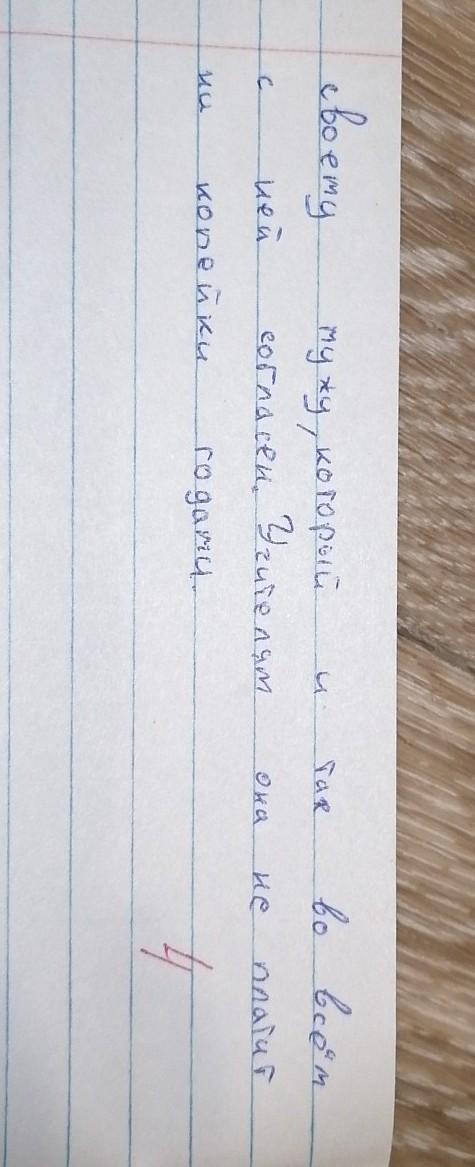 своему мужу, который и так во всём
с ней согласен. Учителям она не платит
ни копейки годами.
4